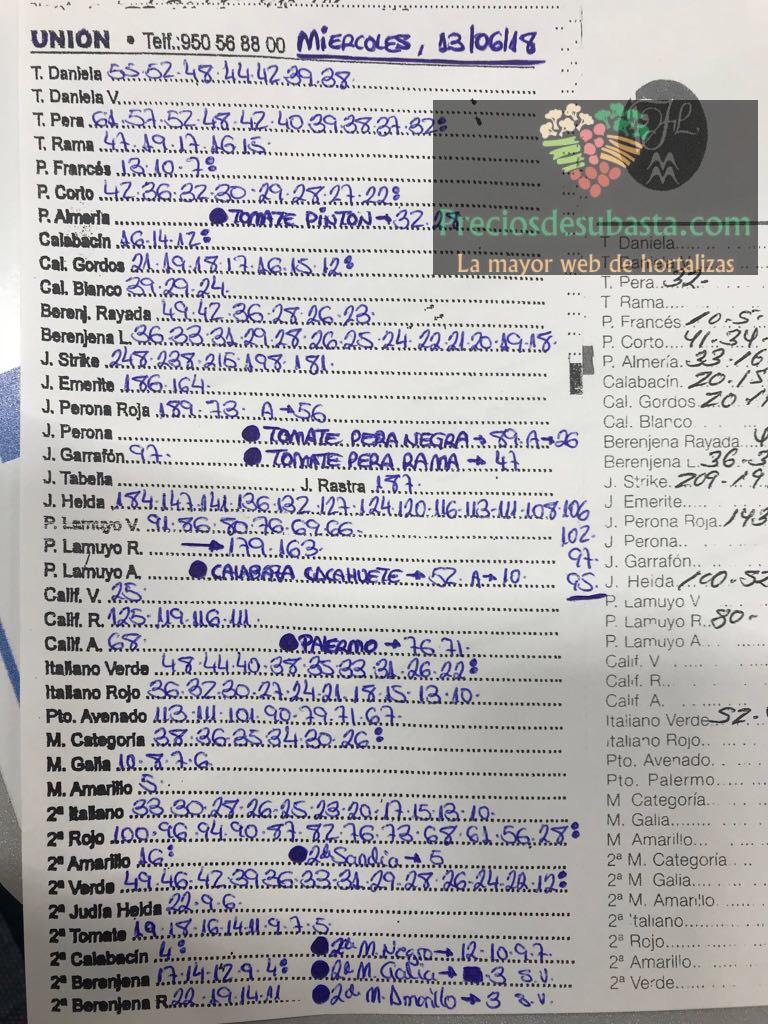 UNIÓN • Telf.:950 56 88 00 MIERCOLES, 13/06/18
T. Daniela 55.52.48.44.42.39.38
T. Daniela V.
T. Pera 61.57.52.48.42.40.39.38.37.32
T. Rama 47.19.17.16.15
P. Francés 13.10.7
P. Corto 42.36.32.30.29.28.27.22
P. Almería ● TOMATE PINTON → 32
Calabacín 16.14.12
Cal. Gordos 21.19.18.17.16.15.12
Cal. Blanco 39.29.24
Berenj. Rayada 49.42.36.28.26.23
Berenjena L. 36.33.31.29.28.26.25.24.22.21.20.19.18
J. Strike 248.238.215.198.181
J. Emerite 186.164
J. Perona Roja 189.73. A→56
J. Perona ● TOMATE PERA NEGRA → 89. A→26
J. Garrafón 97. ● TOMATE PERA RAMA → 47
J. Tabella J. Rastra 187
J. Helda 184.147.141.136.132.127.124.120.116.113.111.108.106
102
97
95
P. Lamuyo V. 91.86.80.76.69.66
P. Lamuyo R. → 179.163
P. Lamuyo A. ● CALABAZA CACAHUETE → 52. A→10
Calif. V. 25
Calif. R. 125.119.116.111
Calif. A. 68 ● PALERMO → 76.71
Italiano Verde 48.44.40.38.35.33.31.26.22
Italiano Rojo 36.32.30.27.24.21.18.15.13.10
Pto. Avenado 113.111.101.90.79.71.67
M. Categoría 38.36.35.34.30.26
M. Galia 10.8.7.6
M. Amarillo 5
2ª Italiano 33.30.28.26.25.23.20.17.15.13.10
2ª Rojo 100.96.94.90.87.82.76.73.68.61.56.28
2ª Amarillo 16 ● 2ª Sandia → 5
2ª Verde 49.46.42.39.36.33.31.29.28.26.24.22.12
2ª Judía Helda 22.9.6
2ª Tomate 19.18.16.14.11.9.7.5
2ª Calabacín 4 ● 2ª M. Negro → 12.10.9.7
2ª Berenjena 17.14.12.9.4 ● 2ª M. Galia → 3 s.v.
2ª Berenjena R. 22.19.14.11 ● 2ª M. Amarillo → 3 s.v.
Preciosdesubasta.com
La mayor web de hortalizas
T Daniela
T. Pera 32-
T Rama
P. Francés 10-5-
P. Corto 41-34-
P. Almería 33-16
Calabacín. 20-15
Cal. Gordos
Cal. Blanco
Berenjena Rayada
Berenjena L. 36-3
J. Strike 209-19
J Emerite
J. Perona Roja 143
J. Perona
J. Garrafón
J. Heida 100-52
P. Lamuyo V
P. Lamuyo R. 80-
P. Lamuyo A
Calif. V
Calif. R
Calif A.
Italiano Verde 52-
Italiano Rojo
Pto. Avenado
Pto. Palermo
M Categoría
M. Galia
M Amarillo
2ª M. Categoría
2ª M Galia
2ª M. Amarillo
2ª Italiano
2ª Rojo
2ª Amarillo
2ª Verde